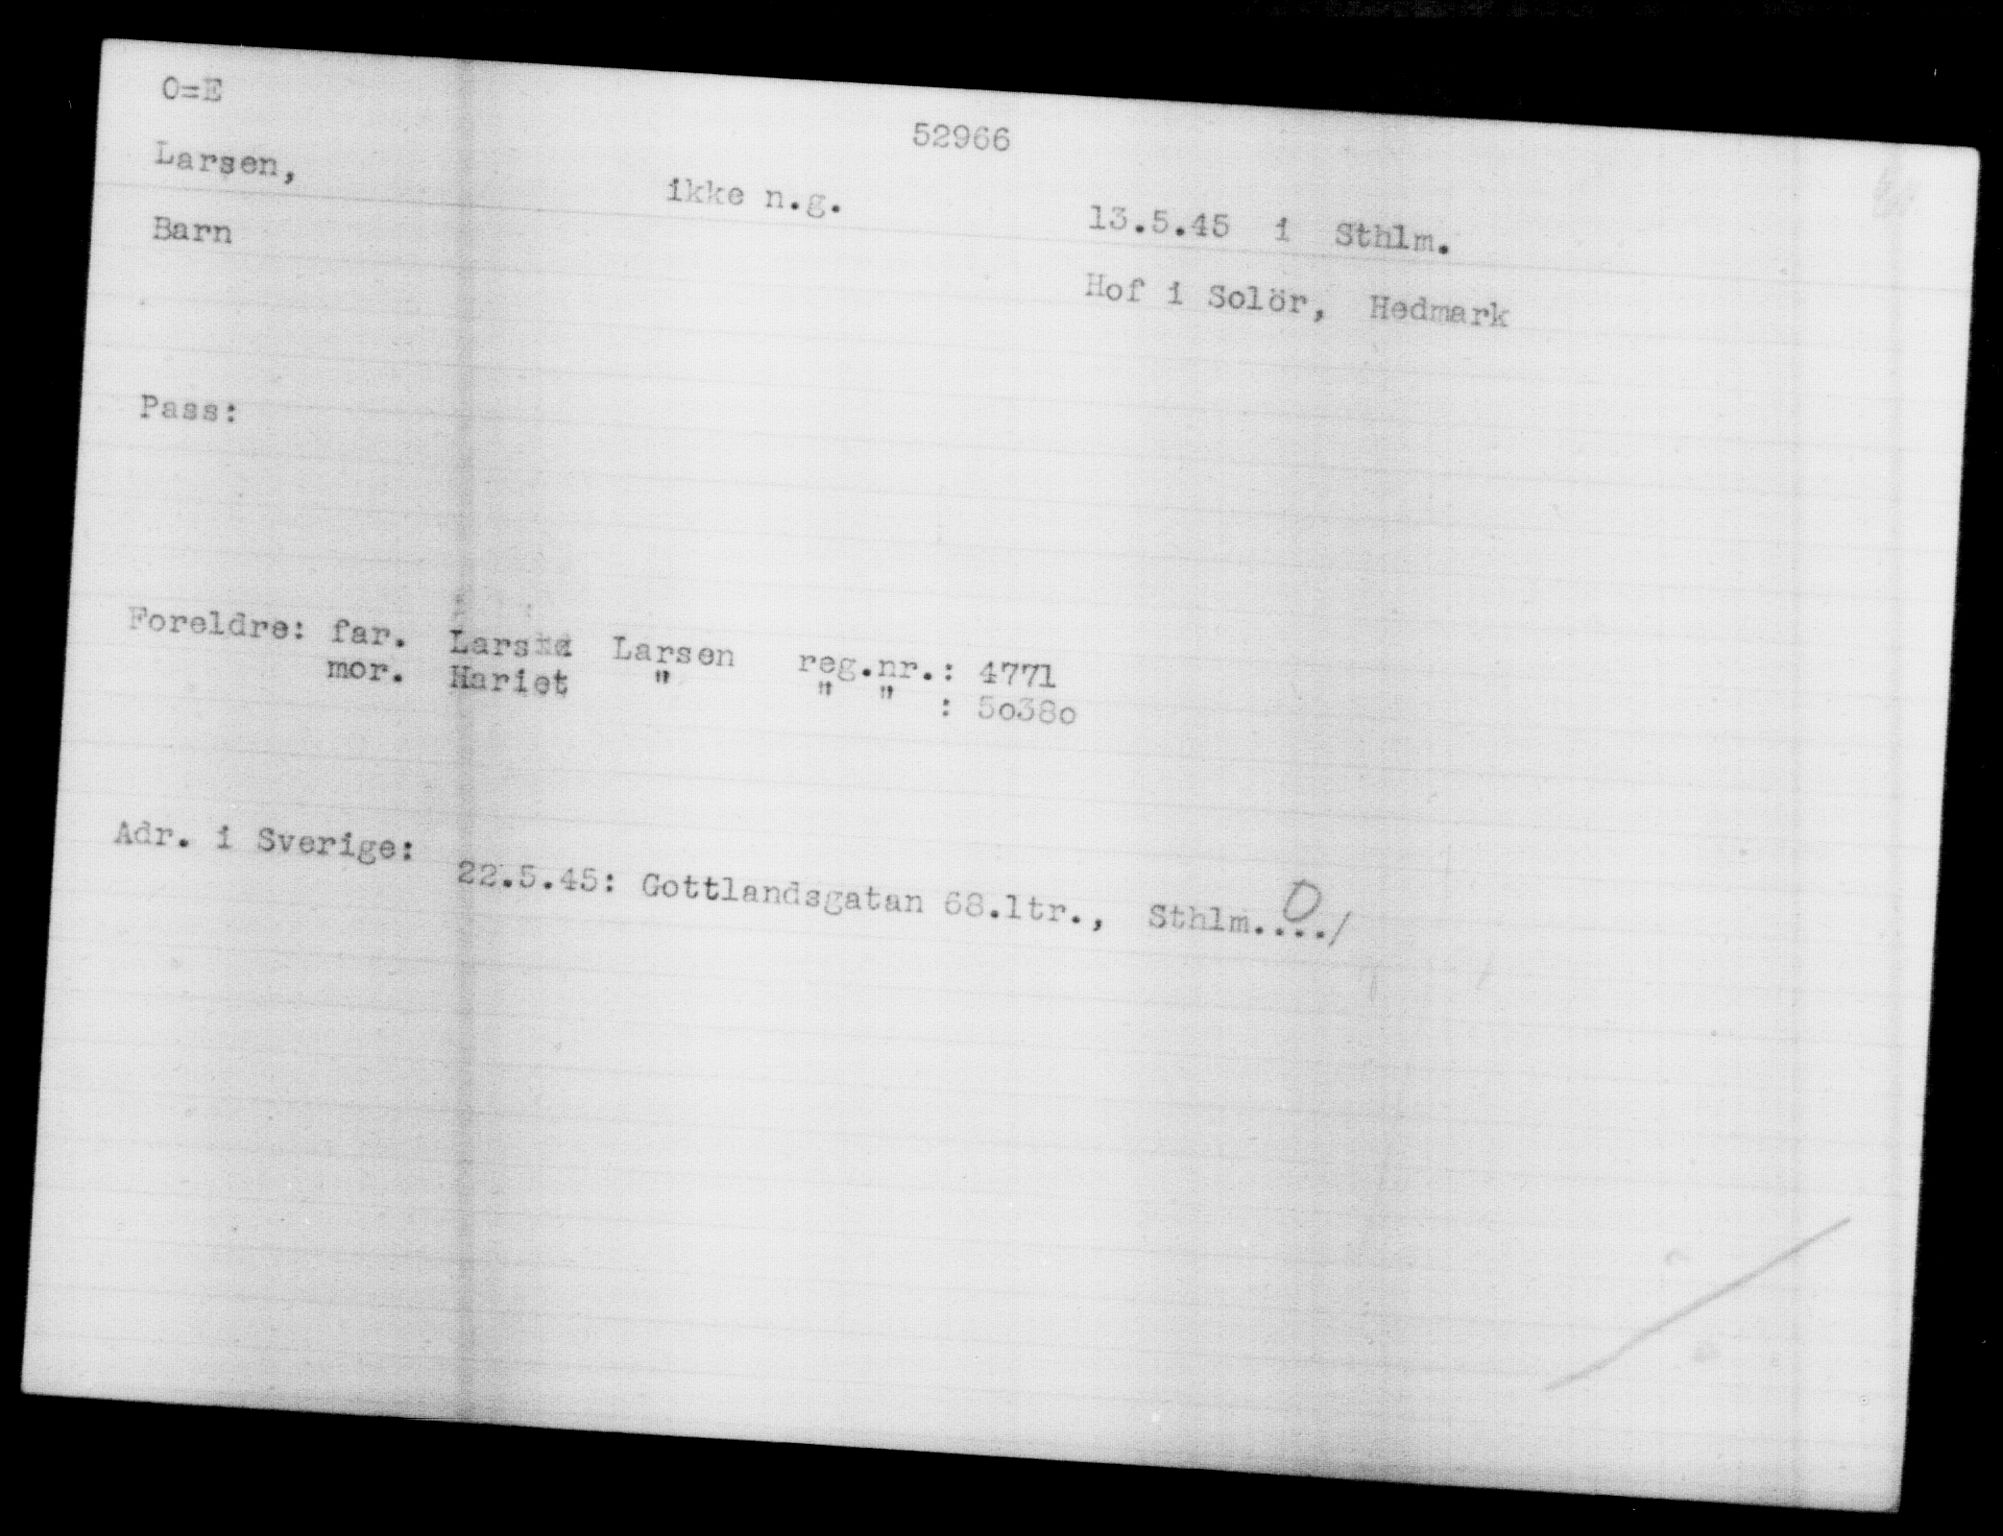 O=E
52966
Larsen, ikke n.g. 13.5.45 i Sthlm.
Barn Hof i Solör, Hedmark
Pass:
Foreldre: far. Larsen reg.nr.: 4771
mor. Hariet " " " : 5o38o
Adr. i Sverige:
22.5.45: Gottlandsgatan 68.ltr., Sthlm..../